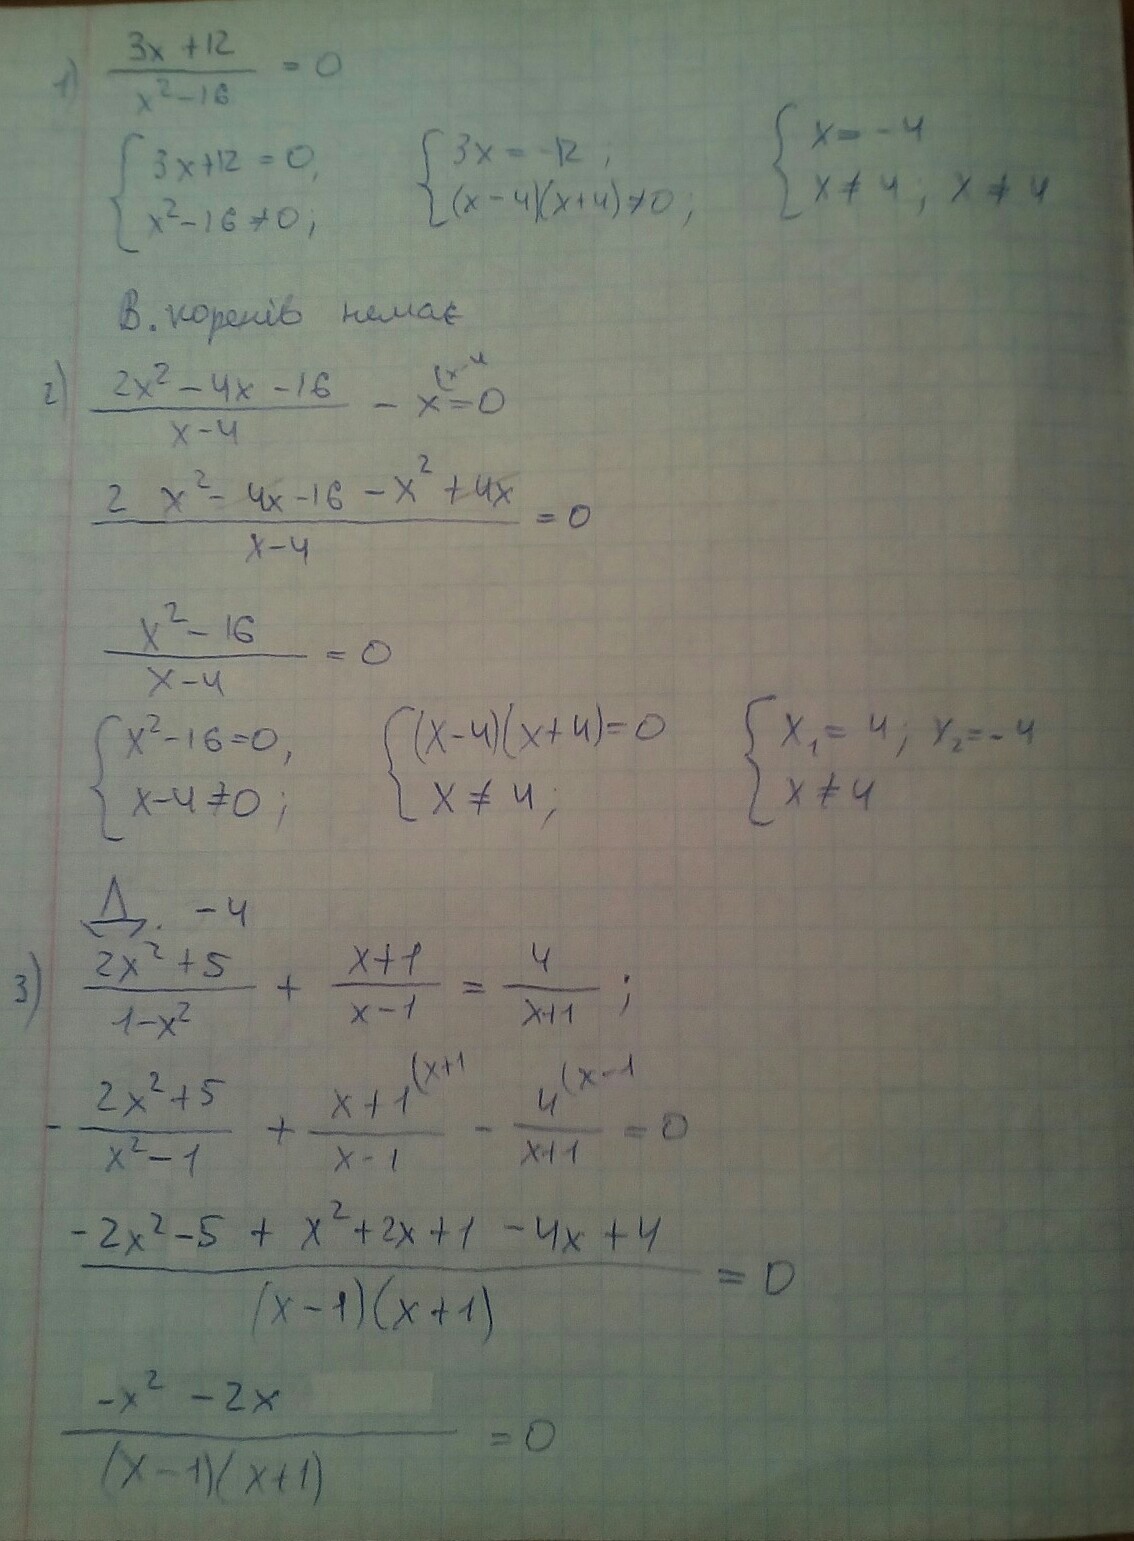 1) (3x+12)/(x²-16) = 0
{ 3x+12=0, x²-16≠0; { 3x=-12; (x-4)(x+4)≠0; { x=-4 x≠4; x≠4
В. коренів немає
2) (2x²-4x-16)/(x-4) - x^(x-4 =0
(2x²-4x-16-x²+4x)/(x-4) =0
(x²-16)/(x-4) =0
{ x²-16=0, x-4≠0; { (x-4)(x+4)=0 x≠4; { x₁=4; x₂=-4 x≠4
Д. -4
3) (2x²+5)/(1-x²) + (x+1)/(x-1) = 4/(x+1);
-(2x²+5)/(x²-1) + (x+1^(x+1)/(x-1) - (4^(x-1)/(x+1) =0
(-2x²-5+x²+2x+1-4x+4)/((x-1)(x+1)) =0
(-x²-2x)/((x-1)(x+1)) =0